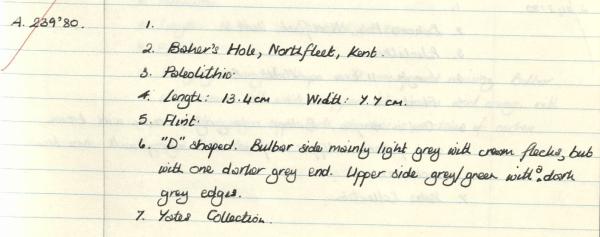 A. 239'80.
1.
2. Baker's Hole, Northfleet, Kent.
3. Paleolithic.
4. Length: 13.4cm Width: 7.7cm.
5. Flint.
6. "D" shaped. Bulbar side mainly light grey with cream flecks, but
with one darker grey end. Upper side grey/green with a dark
grey edges.
7. Yates Collection.